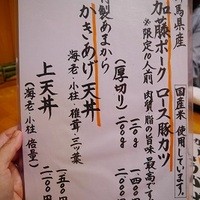 国産米使用しています。
馬県産
加藤ポークロース豚カツ
※限定10人前 肉質 脂の旨味 最高です
(厚切り) 200g
300g
製あまから
かきあげ天丼
(海老 小柱 椎茸 三ッ葉
一五〇〇円
上天丼
(海老 小柱 倍量)
二一〇〇円